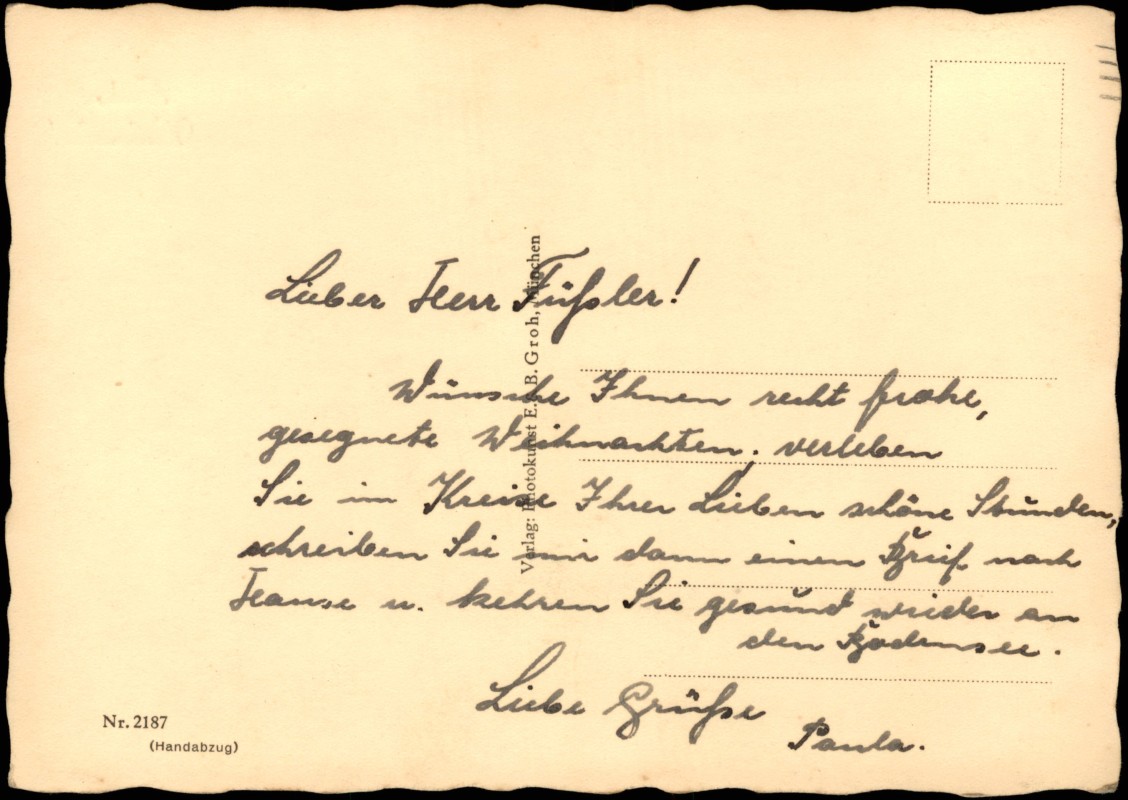 Lieber Herr Füßler!
Wünsche Ihnen recht frohe,
gesegnete Weihnachten. verleben
Sie im Kreise Ihrer Lieben schöne Stunden,
schreiben Sie mir dann einen Brief nach
Hause u. kehren Sie gesund wieder an
den Bodensee.
Liebe Grüße
Paula.
Verlag: Photokunst E. B. Groh, München
Nr. 2187
(Handabzug)